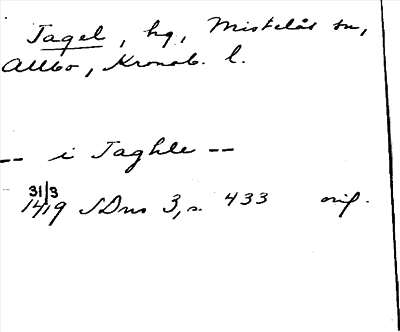 Tagel, hg, Mistelås sn,
Allbo, Kronob. l.
-- i Taghle --
31/3
1419 SDns 3, s. 433 orig.